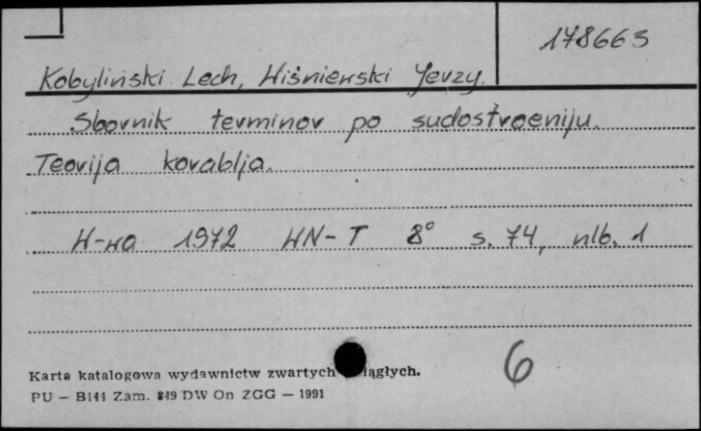 178663
Kobyliński Lech, Wiśniewski Jerzy.
Sbornik terminov po sudostroeniju.
Teorija korablja.
W-wa 1972 WN-T 8° s. 74, nlb. 1
6
Karta katalogowa wydawnictw zwartych ciągłych.
PU — B141 Zam. 849 DW On ZGG — 1991